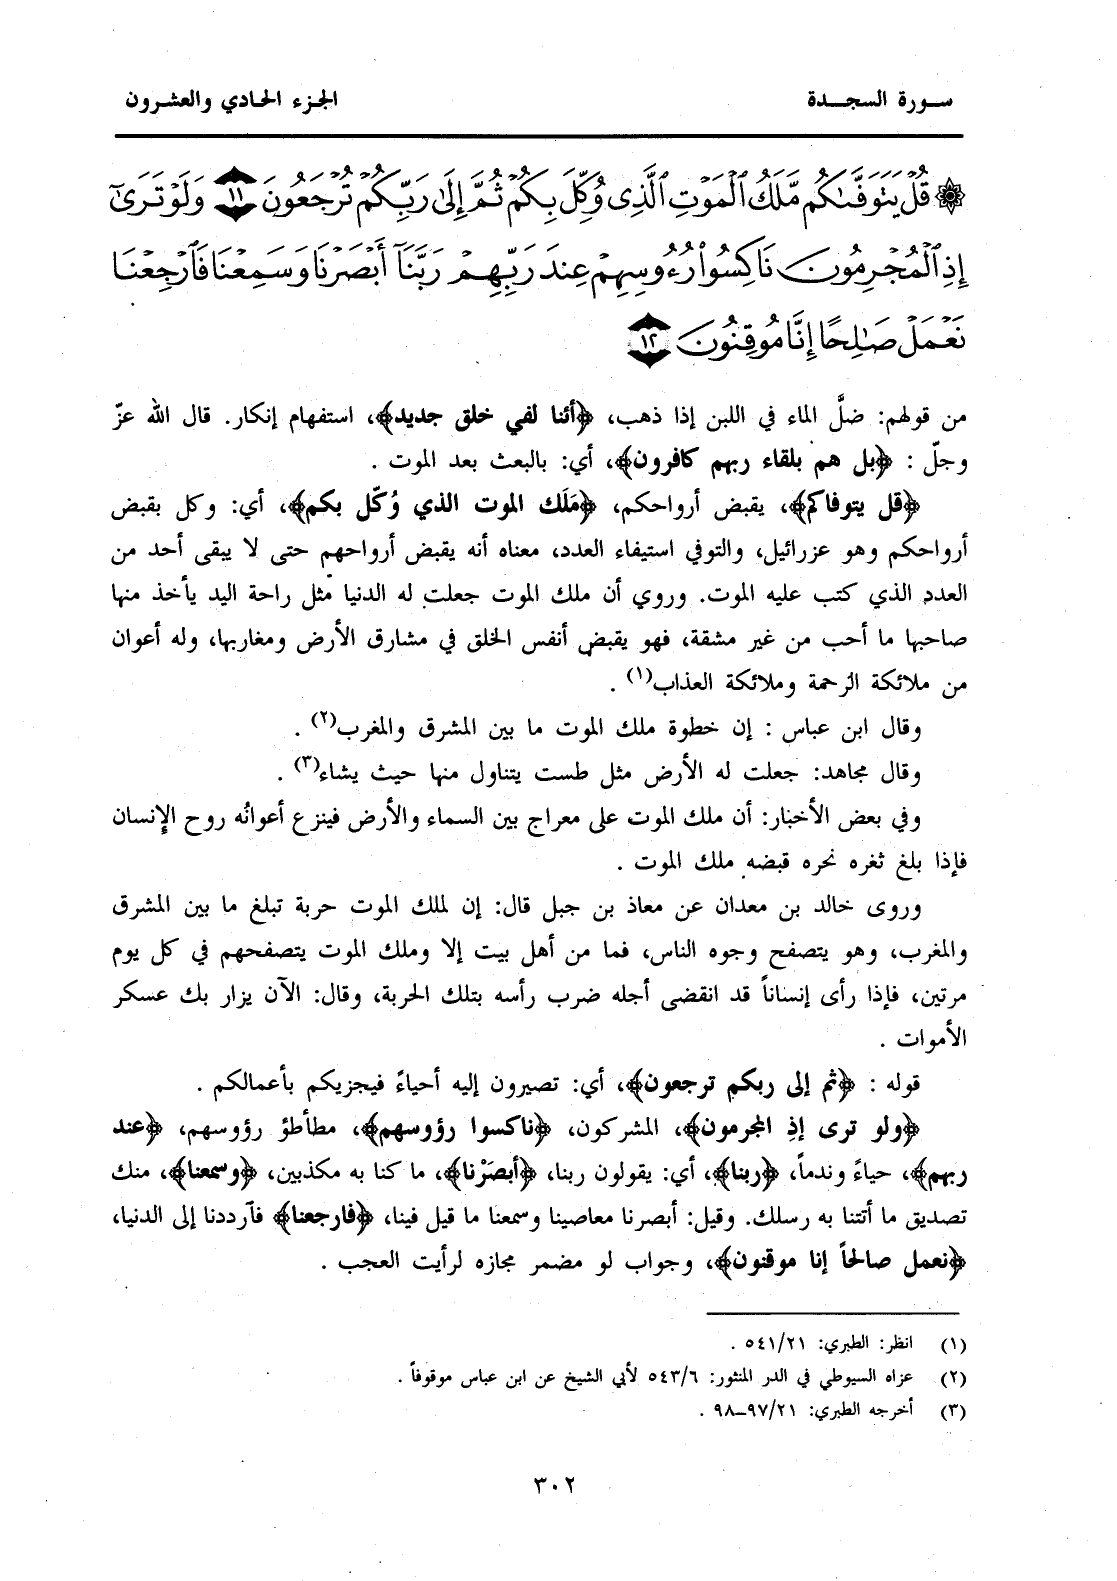 سورة السجدة
الجزء الحادي والعشرون
۞ قُلْ يَتَوَفَّىٰكُم مَّلَكُ ٱلْمَوْتِ ٱلَّذِى وُكِّلَ بِكُمْ ثُمَّ إِلَىٰ رَبِّكُمْ تُرْجَعُونَ ١١ وَلَوْ تَرَىٰٓ
إِذِ ٱلْمُجْرِمُونَ نَاكِسُوا۟ رُءُوسِهِمْ عِندَ رَبِّهِمْ رَبَّنَآ أَبْصَرْنَا وَسَمِعْنَا فَٱرْجِعْنَا
نَعْمَلْ صَـٰلِحًا إِنَّا مُوقِنُونَ ١٢
من قولهم: ضلَّ الماء في اللبن إذا ذهب، ﴿أئنا لفي خلق جديد﴾، استفهام إنكار. قال الله عزّ
وجلّ : ﴿بل هم بلقاء ربهم كافرون﴾، أي: بالبعث بعد الموت .
﴿قل يتوفاكم﴾، يقبض أرواحكم، ﴿مَلَك الموت الذي وُكّل بكم﴾، أي: وكل بقبض
أرواحكم وهو عزرائيل، والتوفي استيفاء العدد، معناه أنه يقبض أرواحهم حتى لا يبقى أحد من
العدد الذي كتب عليه الموت. وروي أن ملك الموت جعلت له الدنيا مثل راحة اليد يأخذ منها
صاحبها ما أحب من غير مشقة، فهو يقبض أنفس الخلق في مشارق الأرض ومغاربها، وله أعوان
من ملائكة الرحمة وملائكة العذاب(١) .
وقال ابن عباس : إن خطوة ملك الموت ما بين المشرق والمغرب(٢) .
وقال مجاهد: جعلت له الأرض مثل طست يتناول منها حيث يشاء(٣) .
وفي بعض الأخبار: أن ملك الموت على معراج بين السماء والأرض فينزع أعوانُه روح الإنسان
فإذا بلغ ثغره نحره قبضه ملك الموت .
وروى خالد بن معدان عن معاذ بن جبل قال: إن لملك الموت حربة تبلغ ما بين المشرق
والمغرب، وهو يتصفح وجوه الناس، فما من أهل بيت إلا وملك الموت يتصفحهم في كل يوم
مرتين، فإذا رأى إنساناً قد انقضى أجله ضرب رأسه بتلك الحربة، وقال: الآن يزار بك عسكر
الأموات .
قوله : ﴿ثم إلى ربكم ترجعون﴾، أي: تصيرون إليه أحياءً فيجزيكم بأعمالكم .
﴿ولو ترى إذِ المجرمون﴾، المشركون، ﴿ناكسوا رؤوسهم﴾، مطأطؤ رؤوسهم، ﴿عند
ربهم﴾، حياءً وندماً، ﴿ربنا﴾، أي: يقولون ربنا، ﴿أبصَرْنا﴾، ما كنا به مكذبين، ﴿وسمعنا﴾، منك
تصديق ما أتتنا به رسلك. وقيل: أبصرنا معاصينا وسمعنا ما قيل فينا، ﴿فارجعنا﴾ فآرددنا إلى الدنيا،
﴿نعمل صالحاً إنا موقنون﴾، وجواب لو مضمر مجازه لرأيت العجب .
(١) انظر: الطبري: ٥٤١/٢١ .
(٢) عزاه السيوطي في الدر المنثور: ٥٤٣/٦ لأبي الشيخ عن ابن عباس موقوفاً .
(٣) أخرجه الطبري: ٩٧/٢١_٩٨ .
٣٠٢